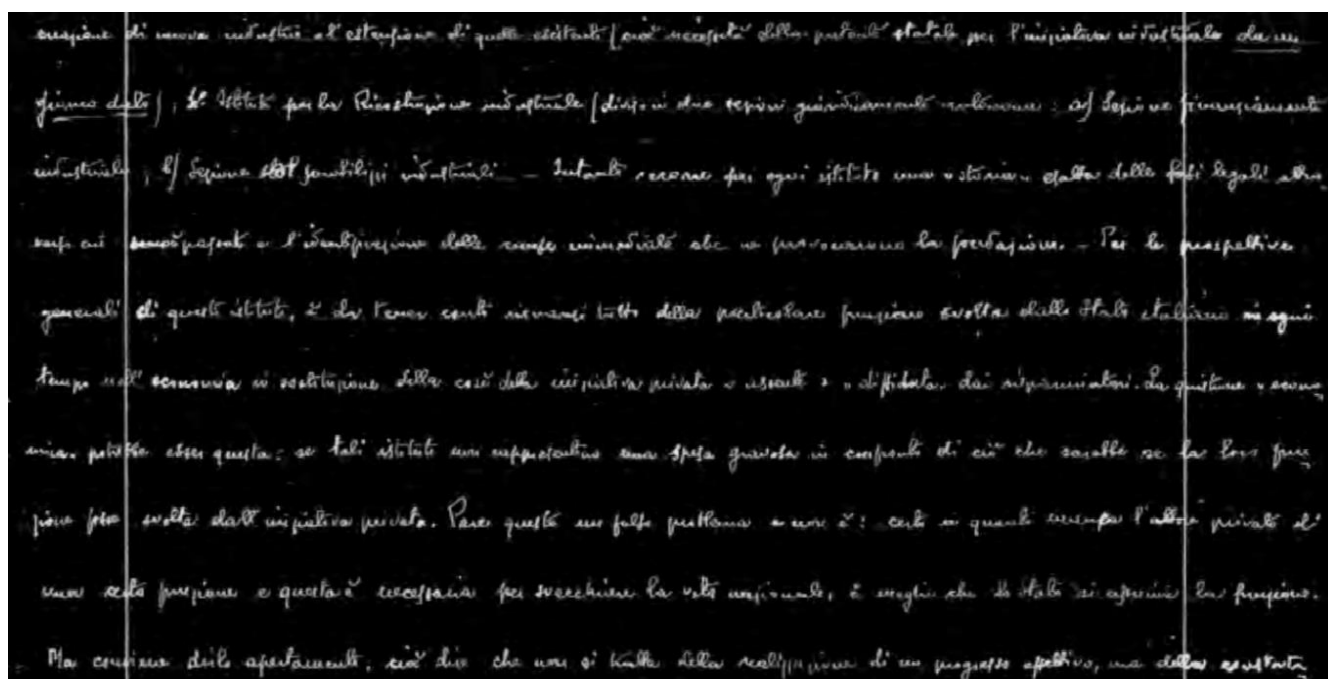 creazione di nuove industrie e l'estensione di quelle esistenti (cioè necessità della potestà statale per l'iniziativa industriale da un
giorno dato); 3° Istituto per la Ricostruzione industriale (diviso in due sezioni giuridicamente autonome: a) Sezione finanziamenti
industriali; b) Sezione smobilizzi industriali – Intanto occorre per ogni istituto una « storia » esatta delle fasi legali attra
verso cui sono passati e l'identificazione delle cause immediate che ne provocarono la fondazione. – Per le prospettive
generali di questi istituti, è da tener conto innanzi tutto della particolare funzione svolta dallo Stato italiano in ogni
tempo nell'economia in sostituzione della così detta iniziativa privata o assente o « diffidata » dai risparmiatori. La quistione « econo
mica » potrebbe esser questa: se tali istituti non rappresentino una spesa gravosa in confronto di ciò che sarebbe se la loro fun
zione fosse svolta dall'iniziativa privata. Pare questo un falso problema e non è: certo in quanto manca l'attore privato di
una certa funzione e questa è necessaria per svecchiare la vita nazionale, è meglio che lo Stato si assuma la funzione.
Ma conviene dirlo apertamente, cioè dire che non si tratta della realizzazione di un progresso effettivo, ma della constata